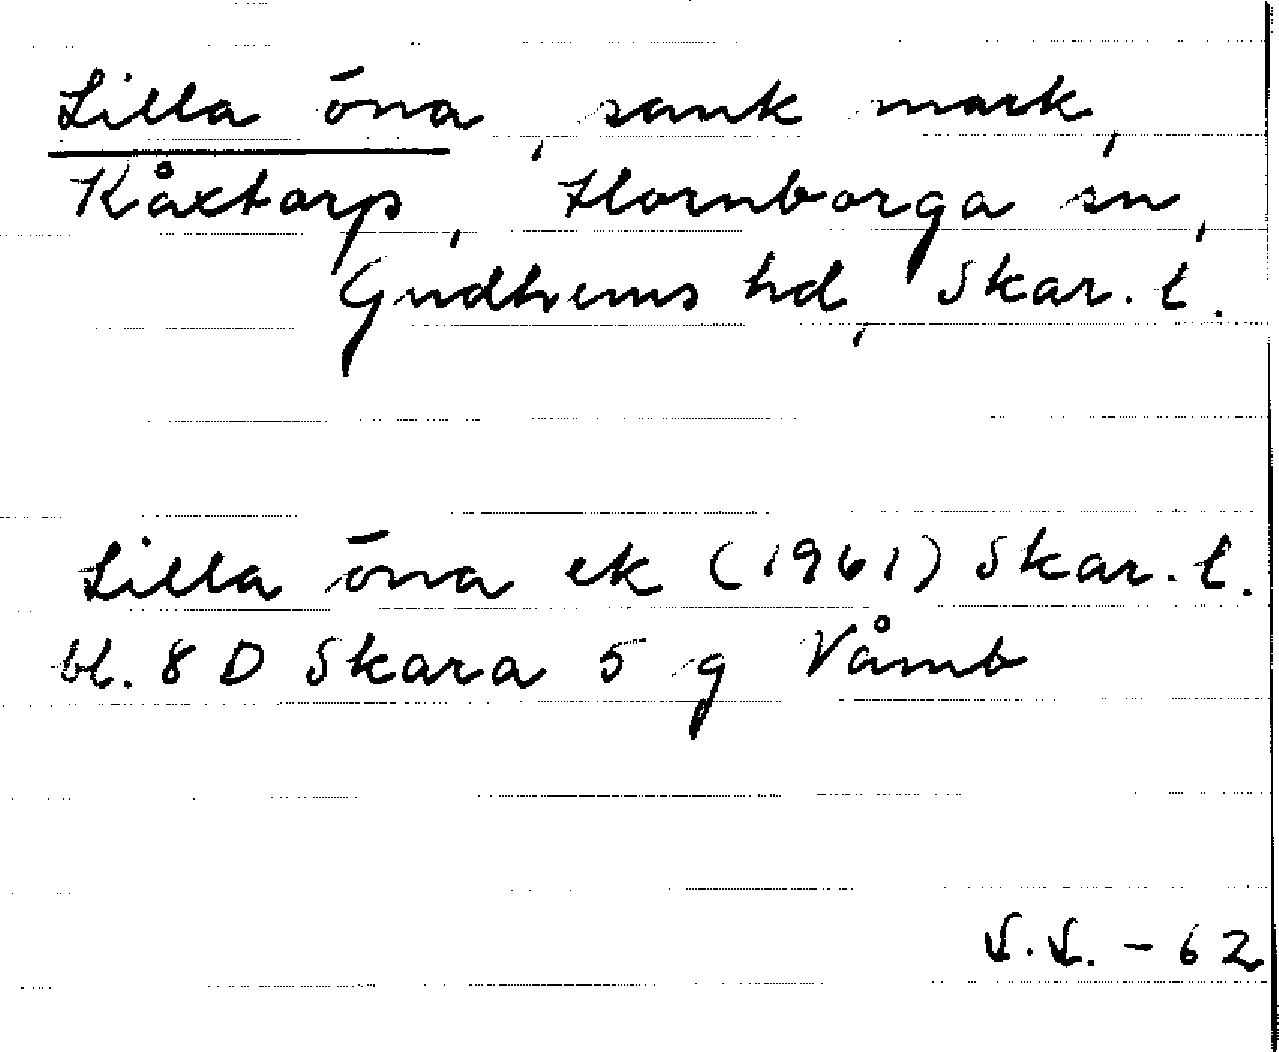 Lilla öna, sank mark,
Kåxtorp, Hornborga sn,
Gudhems hd, Skar. l.
Lilla öna ek (1961) Skar. l.
bl. 8 D Skara 5 g Våmb
S.S. - 62